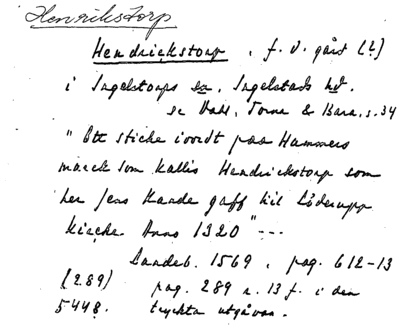 Henrikstorp
Hendrickstorp, f. d. gård (?)
i Ingelstorps sn, Ingelstads hd.
se Dahl, Torna & Bara, s. 34
"Ett sticke iordt paa Hammers
marck som kallis Hendrickstorp som
her Jens Kande gaff til Löderupp
kircke Anno 1320" ---
Landeb. 1569, pag. 612-13
(289) pag. 289 n. 13 f. i den
5448. tryckta utgåvan.